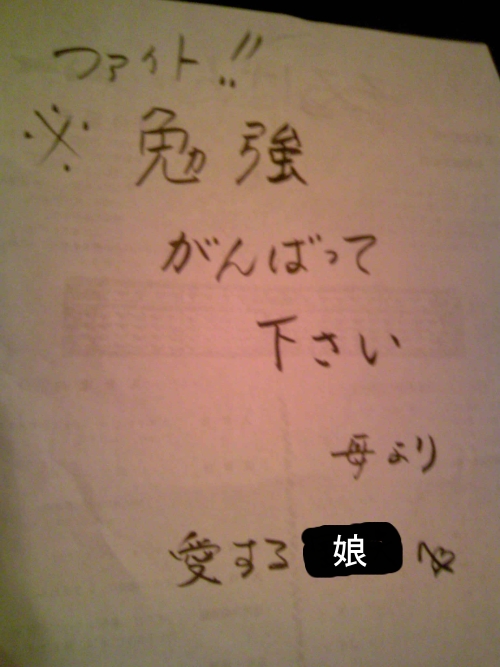 ファイト!!
※勉強
がんばって
下さい
母より
愛する 娘 へ♡